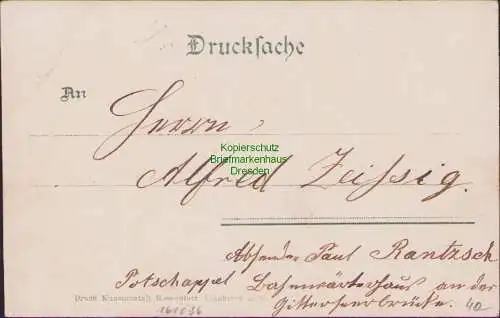 Drucksache
An
Herrn
Kopierschutz
Briefmarkenhaus
Dresden
Alfred Zeißig.
Absender Paul Rantzsch
Potschappel Bahnwärterhaus an der
Druck Kunstanstalt
Gitterseerbrücke. 40
161636